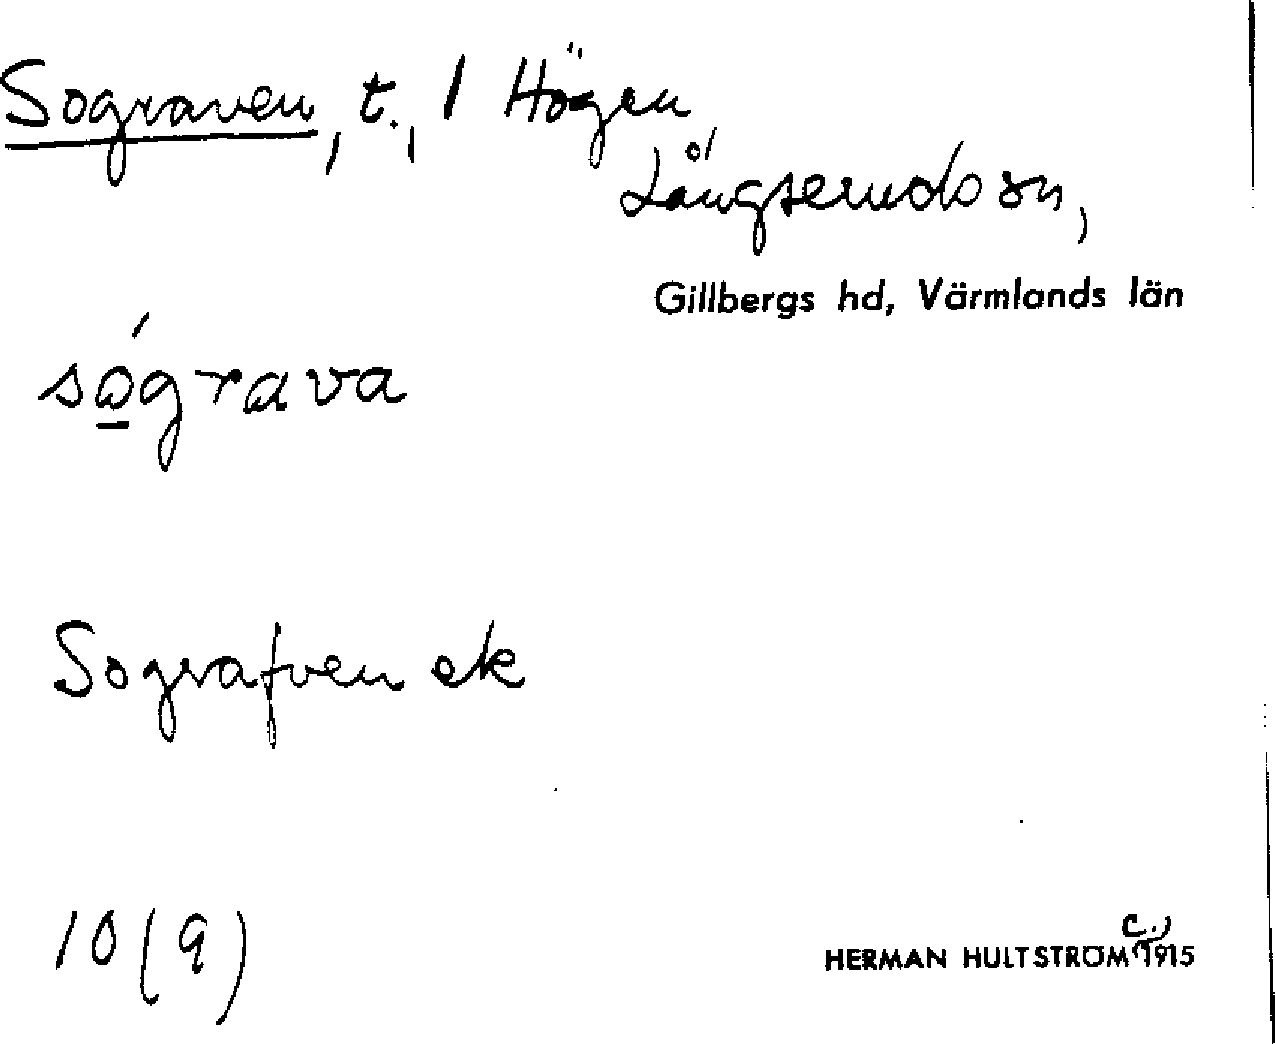 Sograven, t., 1 Högen
Långserud sn,
Gillbergs hd, Värmlands län
só̲grava
Sografven ek
10 (9)
HERMAN HULTSTRÖM c., 1915